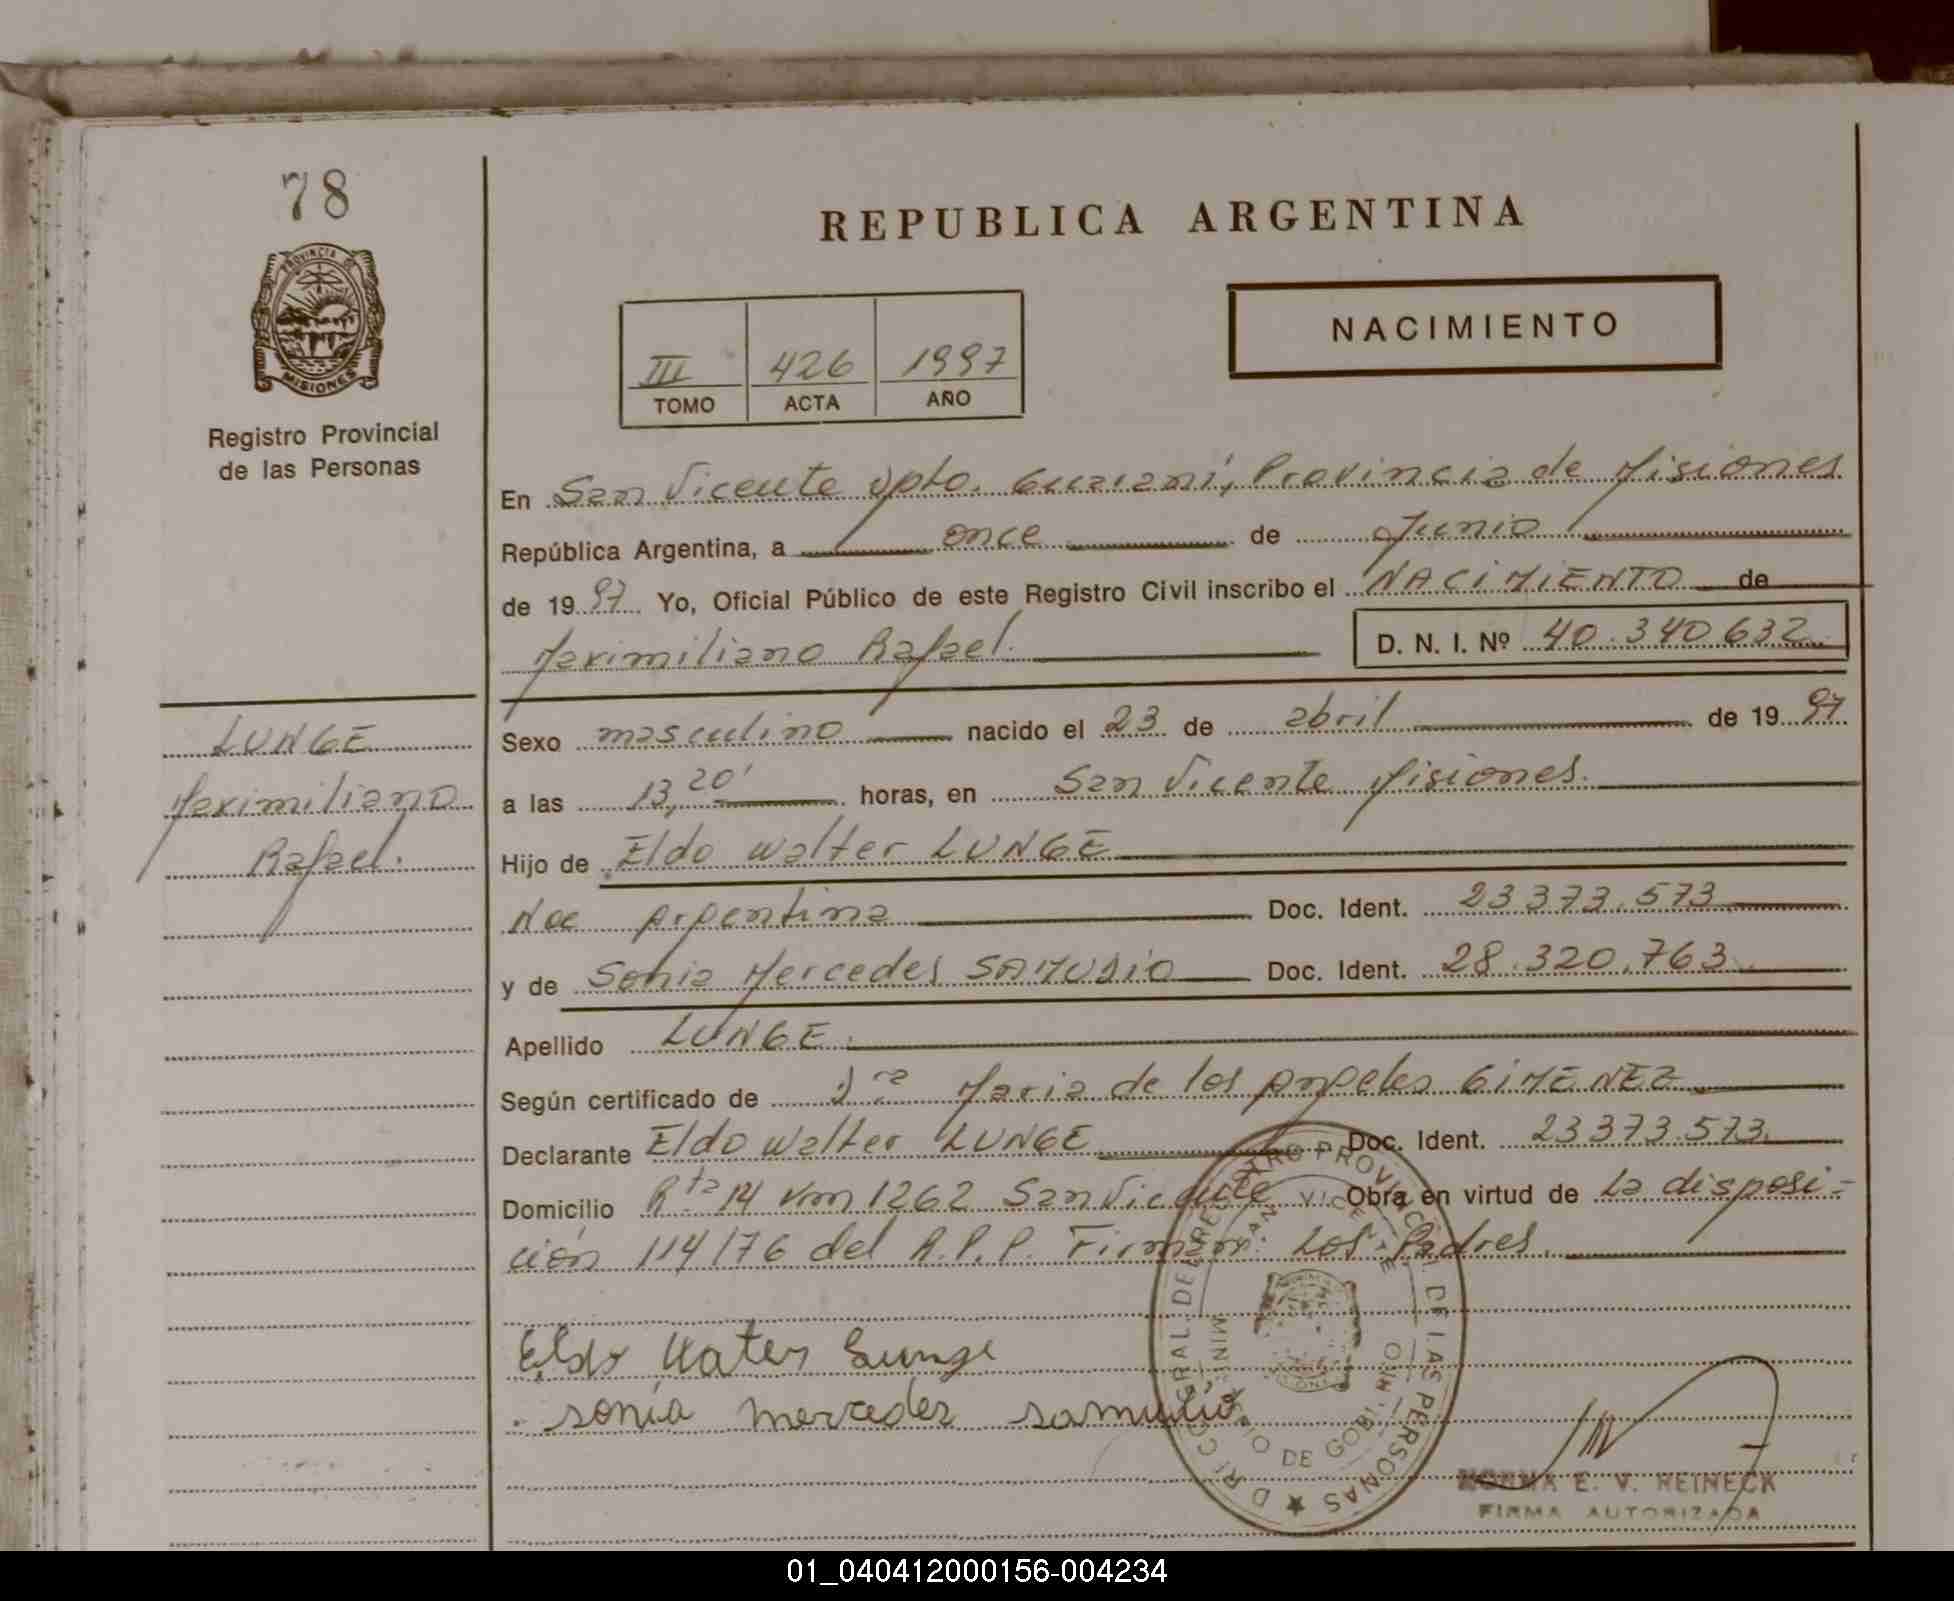 78
PROVINCIA DE
MISIONES
Registro Provincial
de las Personas
REPUBLICA ARGENTINA
NACIMIENTO
III 426 1997
TOMO ACTA AÑO
En San Vicente Dpto. Guaraní, Provincia de Misiones
República Argentina, a once de Junio
de 1997 Yo, Oficial Público de este Registro Civil inscribo el NACIMIENTO de
Maximiliano Rafael. D. N. I. Nº 40.340.632
LUNGE
Maximiliano
Rafael.
Sexo masculino nacido el 23 de abril de 1997
a las 13,20' horas, en San Vicente Misiones.
Hijo de Eldo Walter LUNGE
Nac Argentina Doc. Ident. 23373.573
y de Sonia Mercedes SAMUDIO Doc. Ident. 28.320.763
Apellido LUNGE.
Según certificado de Dra Maria de los Angeles GIMENEZ
Declarante Eldo Walter LUNGE Doc. Ident. 23373.573.
Domicilio Rta 14 Km 1262 San Vicente Obra en virtud de la disposi-
ción 114/76 del R.P.P. Firman: Los Padres.
Eldo Walter Lunge
sonia mercedes samudio
REGISTRO PROVINCIAL DE LAS PERSONAS
SAN VICENTE
NORMA E. V. REINECK
FIRMA AUTORIZADA
01_040412000156-004234